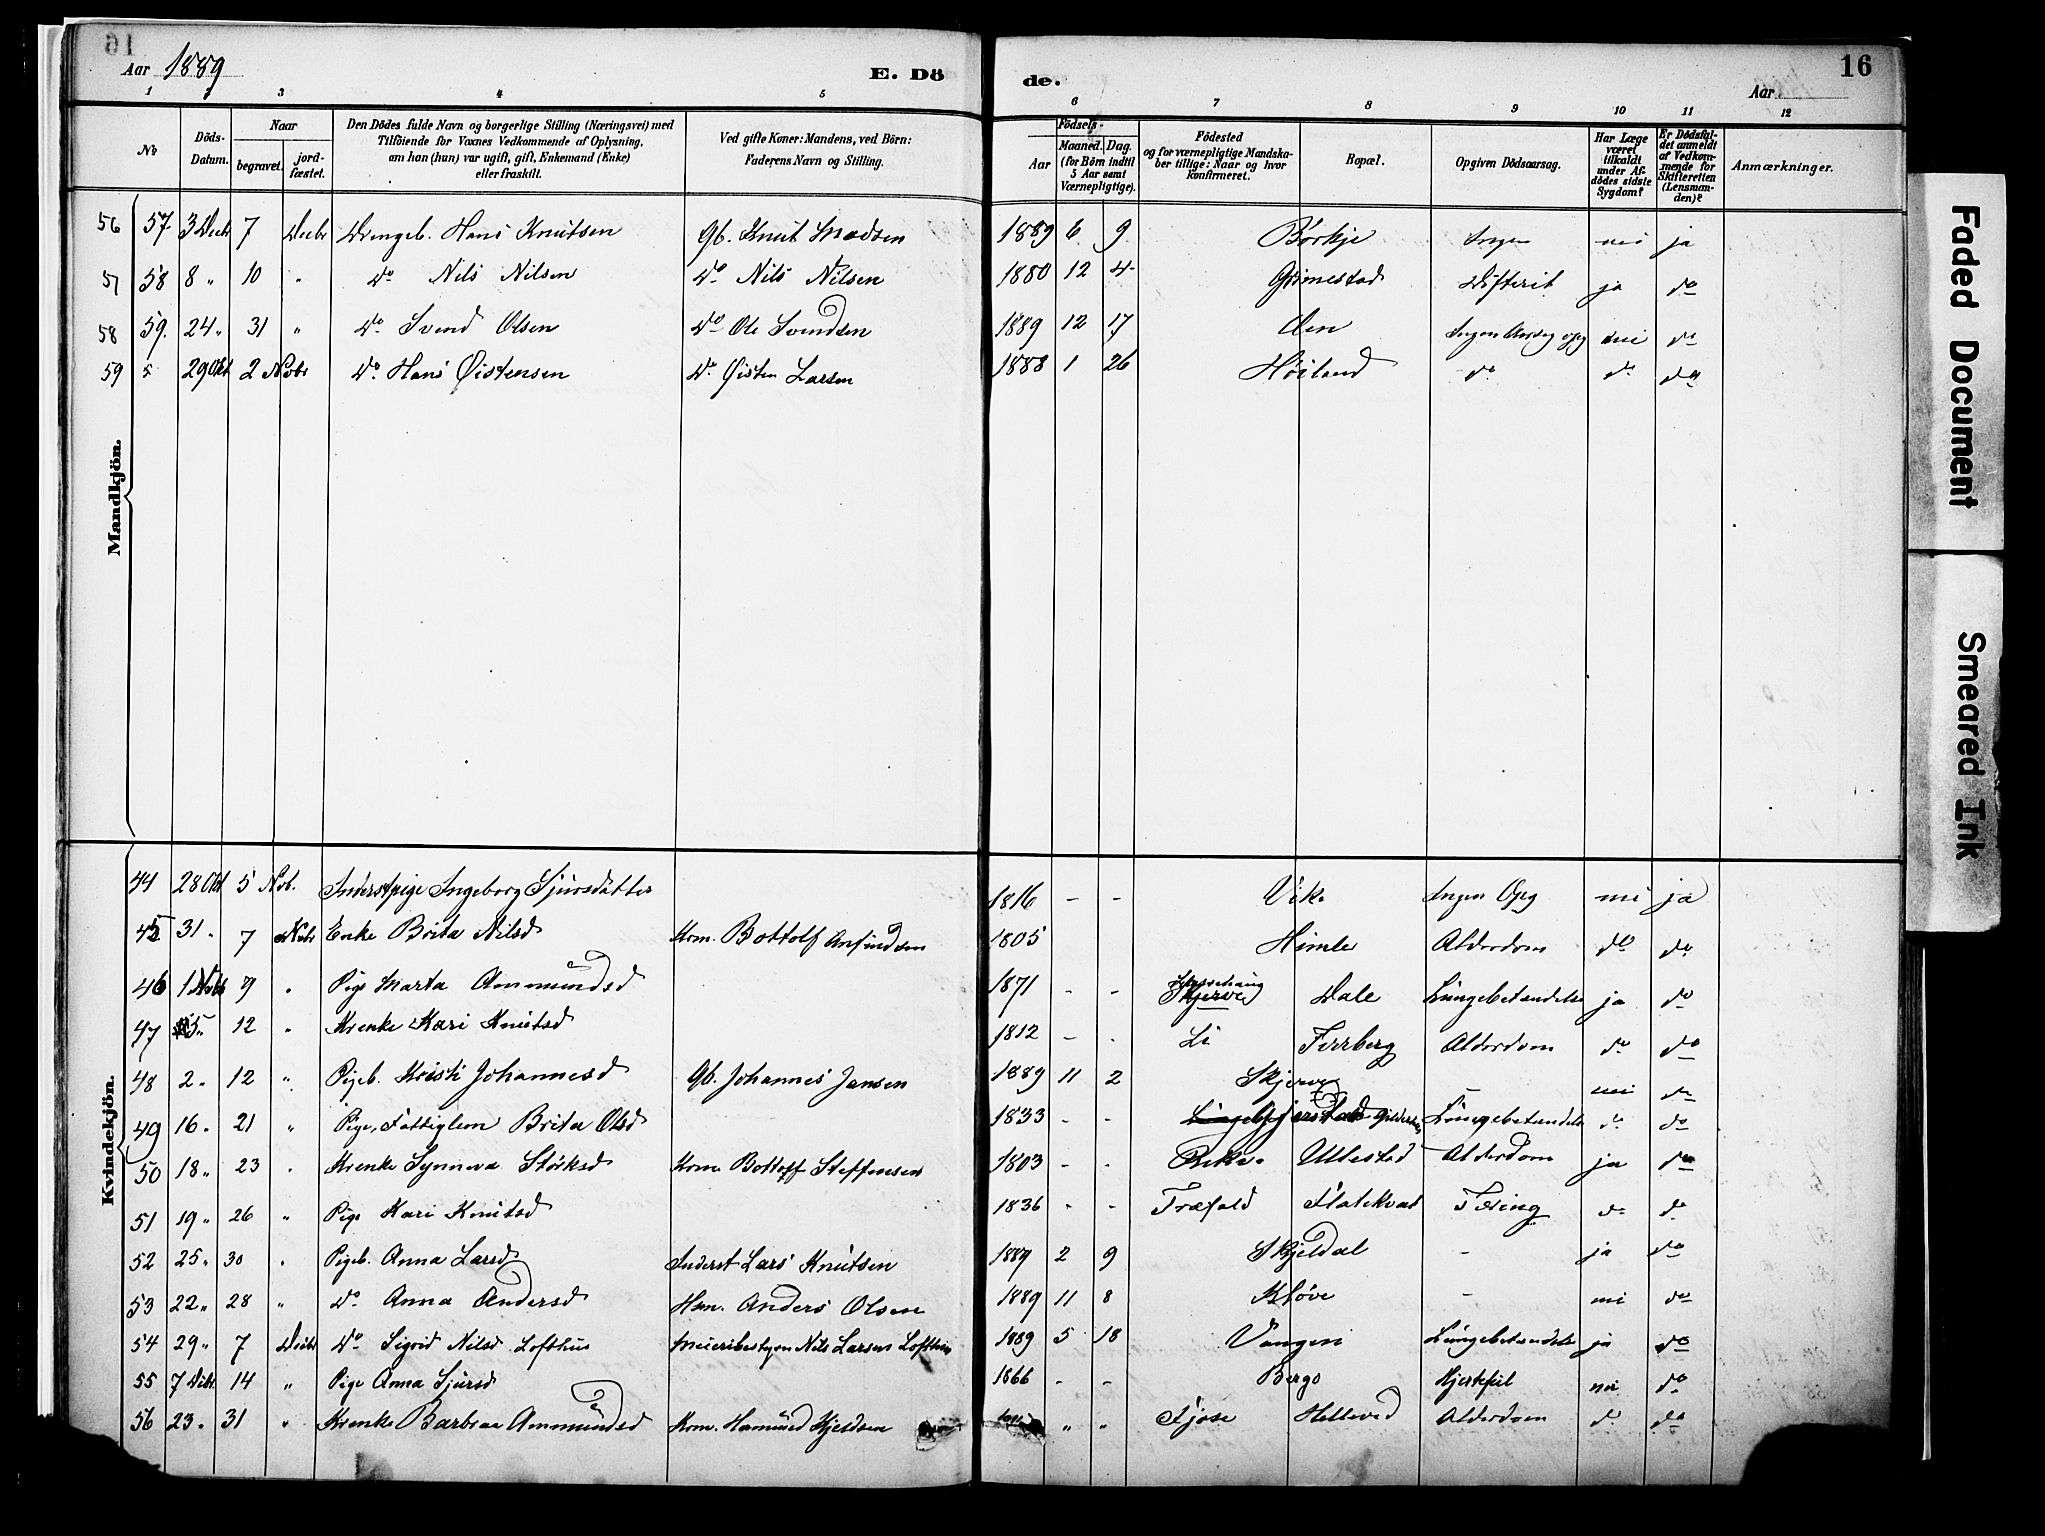 16
Aar 1889
E. Dö
de.
16
Aar
1 2 3 4 5
6 7 8 9 10 11 12
No
Döds-
Datum.
Naar
begravet.
jord-
fæstet.
Den Dödes fulde Navn og borgerlige Stilling (Næringsvei) med
Tilföiende for Voxnes Vedkommende af Oplysning,
om han (hun) var ugift, gift, Enkemand (Enke)
eller fraskilt.
Ved gifte Koner: Mandens, ved Börn:
Faderens Navn og Stilling.
Födsels-
Aar
Maaned. Dag.
(for Börn indtil
5 Aar samt
Værnepligtige).
Födested
og for værnepligtige Mandska-
ber tillige: Naar og hvor
konfirmeret.
Bopæl.
Opgiven Dödsaarsag.
Har Læge
været
tilkaldt
under Af-
dödes sidste
Sygdom?
Er Dödsfal-
det anmeldt
af Vedkom-
mende for
Skifteretten
(Lensman-
den)?
Anmærkninger.
Mandkjön.
56 57 3 Decbr 7 Decbr Drengeb. Hans Knutsen Gb. Knut Madsen 1889 6 9 Börkje Ingen nei ja
57 58 8 " 10 " Do Nils Nilsen Do Nils Nilsen 1880 12 4 Grimestad Difterit ja do
58 59. 24 " 31 " Do Svend Olsen Do Ole Svendsen 1889 12 17 Ingen Aarsag opg nei do
59 29 Okt 2 Novbr Do Hans Øistensen Do Øisten Larsen 1888 1 26 Höiland do do do
Kvindekjön.
44 28 Okt 5 Nov. Inderstpige Ingeborg Sjursdatter 1816 - - Vik Ingen Opg nei ja
45 31 " 7 Novbr Enke Brita Nilsd Krm. Bottolf Anfindsen 1805 Himle Alderdom do do
46 1 Novb 9 " Pige Marta Ammundsd 1871 - - Skjerve Dale Lungebetændelse ja do
47 5 " 12 " Krenke Kari Knutsd 1812 - - Li Finberg Alderdom do do
48 2 " 12 " Pigeb. Kristi Johannesd Gb. Johannes Jansen 1889 11 2 Skjerve - nei do
49 16 " 21 " Pige, Fattiglem Brita Olsd 1833 - - Lungebetændelse do do
50 18 " 23 " Krenke Synneva Störksd Krm Bottolf Steffensen 1803 - - Rekve Ullestad Alderdom ja do
51 19 " 26 " Pige Kari Knutsd 1836 - - Træfald Flatekval Tæring do do
52 25 " 30 " Pigeb. Anna Larsd Inderst Lars Knutsen 1889 2 9 Skjeldal - ja do
53 22 " 28 " Do Anna Andersd Hsm. Anders Olsen 1889 11 8 Klöve - nei do
54 29 " 7 Decbr Do Sigrid Nilsd Lofthus Meieribestyrer Nils Larsen Lofthus 1889 5 18 Vangen Lungebetændelse ja do
55 7 Decbr 14 " Pige Anna Sjursd 1866 - - Bergo Hjertefeil nei do
56 23 " 31 " Krenke Barbraa Ammundsd Krm. Hamund Kjeldsen " " Fjose Helleved Alderdom do do
Faded Document
Smeared Ink